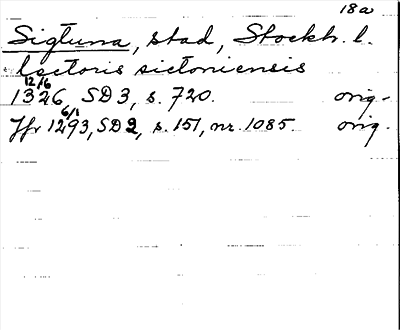 18a
Sigtuna, stad, Stockh. l.
lectoris sictoniensis
12/6
1326, SD3, s. 720. orig.
6/1
Jfr 1293, SD2, s. 151, nr. 1085. orig.